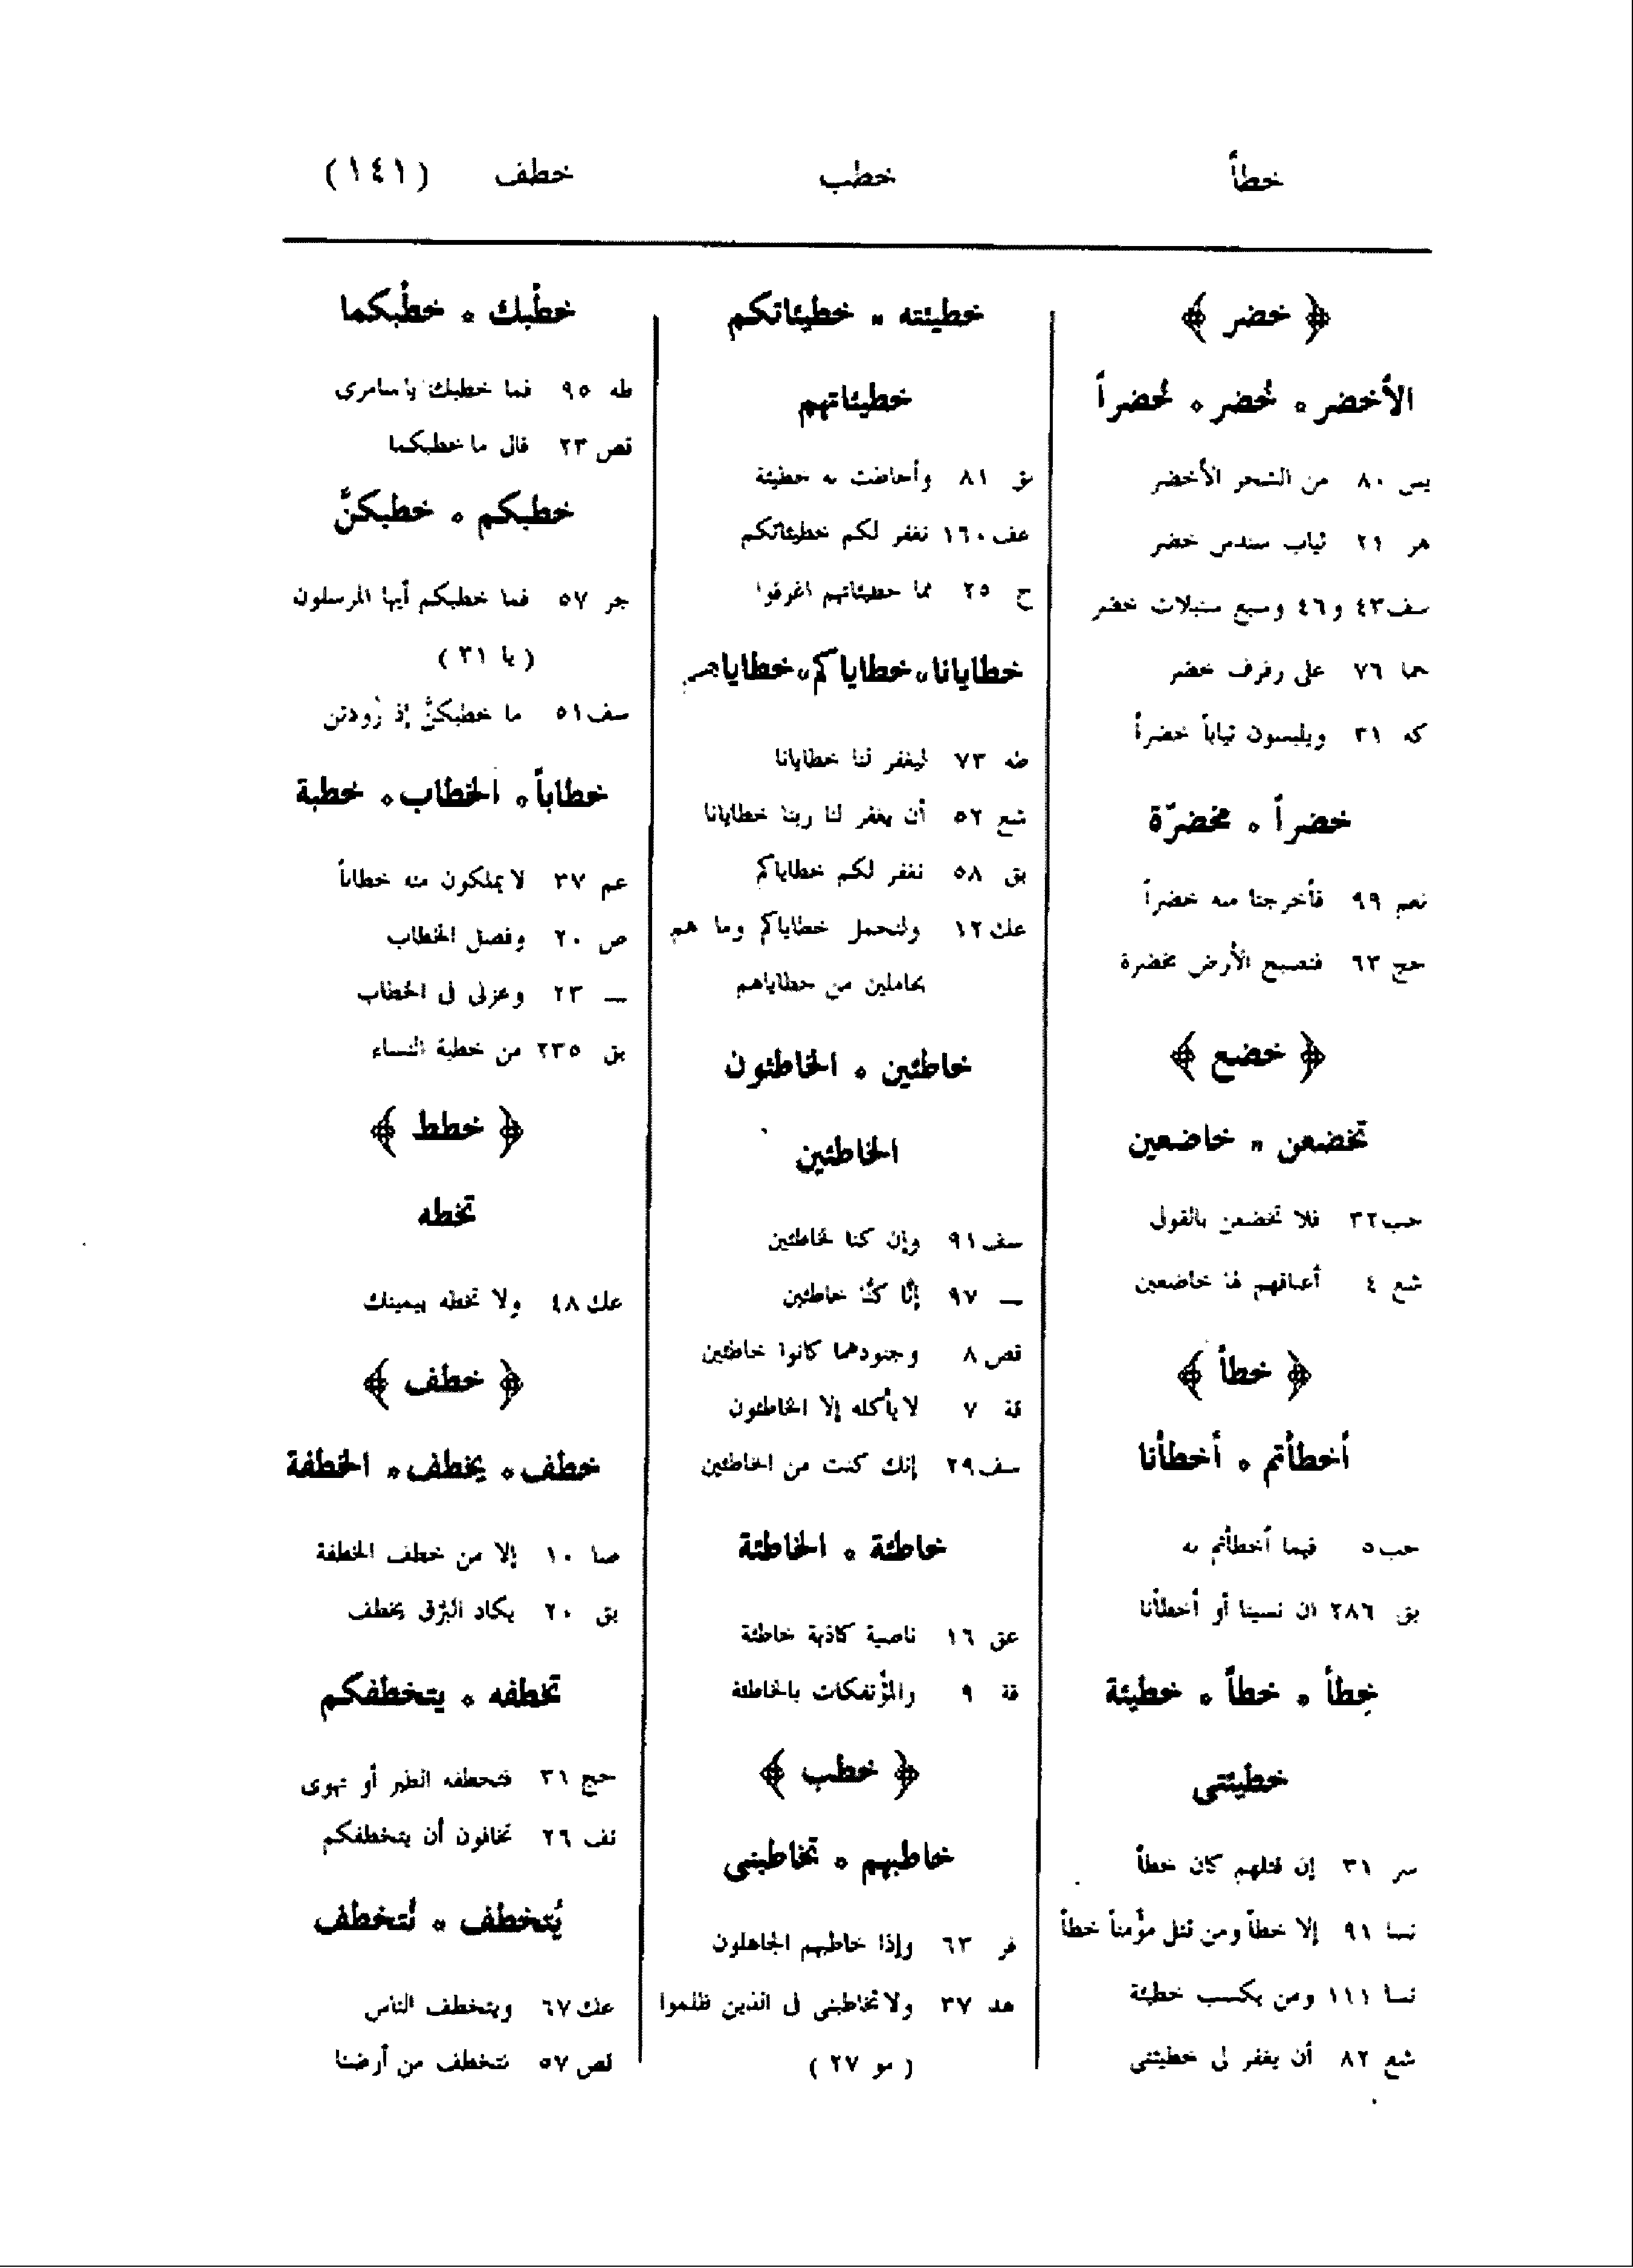 خطأ خطب خطف (١٤١)
﴿ خضر ﴾
الأخضر ٭ خُضر ٭ خُضراً
يس ٨٠ من الشجر الأخضر
هر ٢١ ثياب سندس خضر
سف ٤٣ و ٤٦ وسبع سنبلات خضر
حما ٧٦ على رفرف خضر
كه ٣١ ويلبسون ثياباً خضراً
خضراً ٭ مخضرّة
نعم ٩٩ فأخرجنا منه خضراً
حج ٦٣ فتصبح الأرض مخضرة
﴿ خضع ﴾
تخضعن ٭ خاضعين
حب ٣٢ فلا تخضعن بالقول
شع ٤ أعناقهم لها خاضعين
﴿ خطأ ﴾
أخطأتم ٭ أخطأنا
حب ٥ فيما أخطأتم به
بق ٢٨٦ ان نسينا أو أخطأنا
خِطأ ٭ خطأً ٭ خطيئة
خطيئتى
سر ٣١ إن قتلهم كان خطأ
نسا ٩١ إلا خطأ ومن قتل مؤمناً خطأ
نسا ١١١ ومن يكسب خطيئة
شع ٨٢ أن يغفر لى خطيئتى
خطيئته ٭ خطيئاتكم
خطيئاتهم
بق ٨١ وأحاطت به خطيئة
عف ١٦٠ نغفر لكم خطيئاتكم
ح ٢٥ مما خطيئاتهم اغرقوا
خطايانا ٭ خطاياكم ٭ خطاياهم
طه ٧٣ ليغفر لنا خطايانا
شع ٥٢ أن يغفر لنا ربنا خطايانا
بق ٥٨ نغفر لكم خطاياكم
عك ١٢ ولنحمل خطاياكم وما هم
بحاملين من خطاياهم
خاطئين ٭ الخاطئون
الخاطئين
سف ٩١ وإن كنا لخاطئين
— ٩٧ إنَّا كنَّا خاطئين
قص ٨ وجنودهما كانوا خاطئين
قة ٧ لا يأكله إلا الخاطئون
سف ٢٩ إنك كنت من الخاطئين
خاطئة ٭ الخاطئة
عق ١٦ ناصية كاذبة خاطئة
قة ٩ والمؤتفكات بالخاطئة
﴿ خطب ﴾
خاطبهم ٭ تخاطبنى
فر ٦٣ وإذا خاطبهم الجاهلون
هد ٣٧ ولا تخاطبنى فى الذين ظلموا
( مو ٢٧ )
خطْبك ٭ خطْبكما
طه ٩٥ فما خطبك يا سامرى
قص ٢٣ قال ما خطبكما
خطبكم ٭ خطبكنَّ
جر ٥٧ فما خطبكم أيها المرسلون
( يا ٣١ )
سف ٥١ ما خطبكنَّ إذ رٰودتن
خطاباً ٭ الخطاب ٭ خطبة
عم ٣٧ لا يملكون منه خطاباً
ص ٢٠ وفصل الخطاب
— ٢٣ وعزنى فى الخطاب
بق ٢٣٥ من خطبة النساء
﴿ خطط ﴾
تخطه
عك ٤٨ ولا تخطه بيمينك
﴿ خطف ﴾
خطف ٭ يخطف ٭ الخطفة
صا ١٠ إلا من خطف الخطفة
بق ٢٠ يكاد البرق يخطف
تخطفه ٭ يتخطفكم
حج ٣١ فتخطفه الطير أو تهوى
نف ٢٦ تخافون أن يتخطفكم
يُتخطف ٭ نُتخطف
عك ٦٧ ويتخطف الناس
قص ٥٧ نتخطف من أرضنا